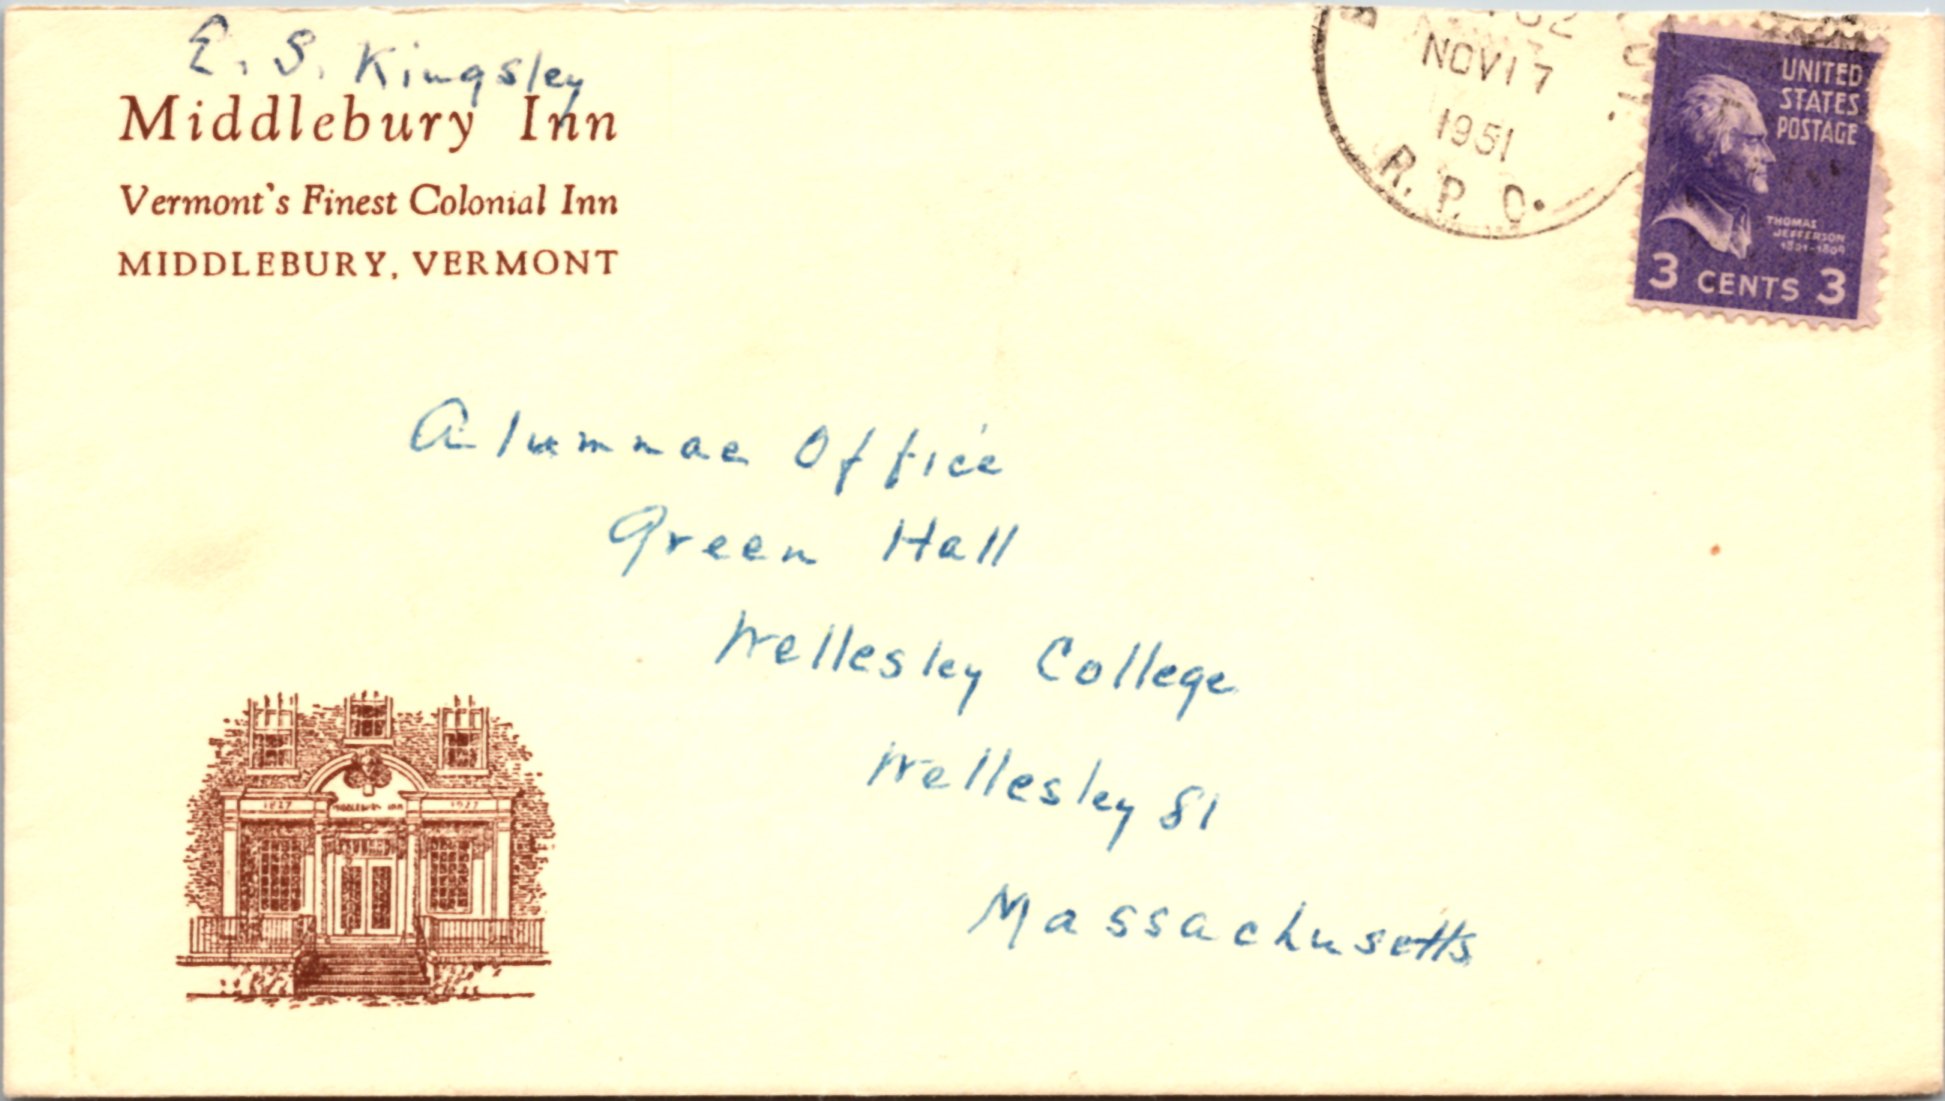 E. S. Kingsley
Middlebury Inn
Vermont's Finest Colonial Inn
MIDDLEBURY, VERMONT
NOV 17
1951
R. P. O.
UNITED
STATES
POSTAGE
THOMAS
JEFFERSON
1801-1809
3 CENTS 3
Alumnae Office
Green Hall
Wellesley College
Wellesley 81
Massachusetts
1827 MIDDLEBURY INN 1927